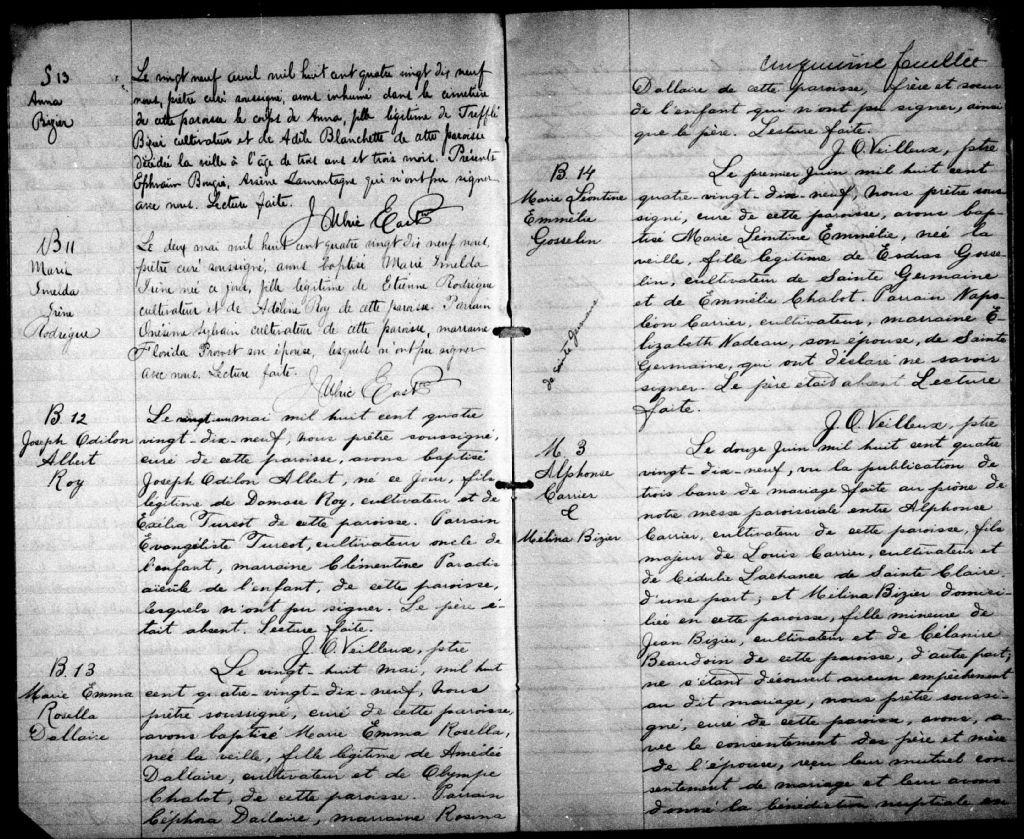 S 13
Anna
Bizier
Le vingt neuf avril mil huit cent quatre vingt dix neuf
nous, prêtre curé soussigné, avons inhumé dans le cimetière
de cette paroisse le corps de Anna, fille légitime de Trefflé
Bizier cultivateur et de Adèle Blanchette de cette paroisse
décédée la veille à l'âge de trois ans et trois mois. Présents
Ephraim Bougie, Arsène Lamontagne qui n'ont pu signer
avec nous. Lecture faite.
J. Ulric East Ptre
B 11
Marie
Imelda
Irène
Rodrigue
Le deux mai mil huit cent quatre vingt dix neuf nous,
prêtre curé soussigné, avons baptisé Marie Imelda
Irène née ce jour, fille légitime de Etienne Rodrigue
cultivateur et de Adeline Roy de cette paroisse. Parrain
Onésime Sylvain cultivateur de cette paroisse, marraine
Florida Provost son épouse, lesquels n'ont pu signer
avec nous. Lecture faite.
J. Ulric East Ptre
B. 12
Joseph Odilon
Albert
Roy
Le vingt-un mai mil huit cent quatre
vingt-dix-neuf, nous prêtre soussigné,
curé de cette paroisse, avons baptisé
Joseph Odilon Albert, né ce jour, fils
légitime de Damase Roy, cultivateur et de
Exélia Turcot de cette paroisse. Parrain
Evangéliste Turcot, cultivateur oncle de
l'enfant, marraine Clémentine Paradis
aïeule de l'enfant, de cette paroisse,
lesquels n'ont pu signer. Le père é-
tait absent. Lecture faite.
J. O. Veilleux, ptre
B. 13
Marie Emma
Rosella
Dallaire
Le vingt-huit mai, mil huit
cent quatre-vingt-dix-neuf, nous
prêtre soussigné, curé de cette paroisse,
avons baptisé Marie Emma Rosella,
née la veille, fille légitime de Amédée
Dallaire, cultivateur et de Olympe
Chabot, de cette paroisse. Parrain
Céphora Dallaire, marraine Rosina
cinquième feuillet
Dallaire de cette paroisse, frère et soeur
de l'enfant qui n'ont pu signer, ainsi
que le père. Lecture faite.
J. O. Veilleux, ptre
B. 14
Marie Léontine
Emmélie
Gosselin
Le premier Juin mil huit cent
quatre-vingt-dix-neuf, nous prêtre sous-
signé, curé de cette paroisse, avons bap-
tisé Marie Léontine Emmélie, née la
veille, fille légitime de Esdras Gosse-
lin, cultivateur de Sainte Germaine
et de Emmélie Chabot. Parrain Napo-
léon Carrier, cultivateur, marraine E-
lizabeth Nadeau, son épouse, de Sainte
Germaine, qui ont déclaré ne savoir
signer. Le père était absent. Lecture
faite.
J. O. Veilleux, ptre
M. 3
Alphonse
Carrier
&
Mélina Bizier
Le douze Juin mil huit cent quatre
vingt-dix-neuf, vu la publication de
trois bans de mariage faite au prône de
notre messe paroissiale entre Alphonse
Carrier, cultivateur de cette paroisse, fils
majeur de Louis Carrier, cultivateur et
de Cédulie Lachance de Sainte Claire,
d'une part; et Mélina Bizier domici-
liée en cette paroisse, fille mineure de
Jean Bizier, cultivateur et de Célanire
Beaudoin de cette paroisse, d'autre part;
ne s'étant découvert aucun empêchement
au dit mariage, nous prêtre soussi-
gné, curé de cette paroisse, avons, a-
vec le consentement des père et mère
de l'épouse, reçu leur mutuel con-
sentement de mariage et leur avons
donné la bénédiction nuptiale en